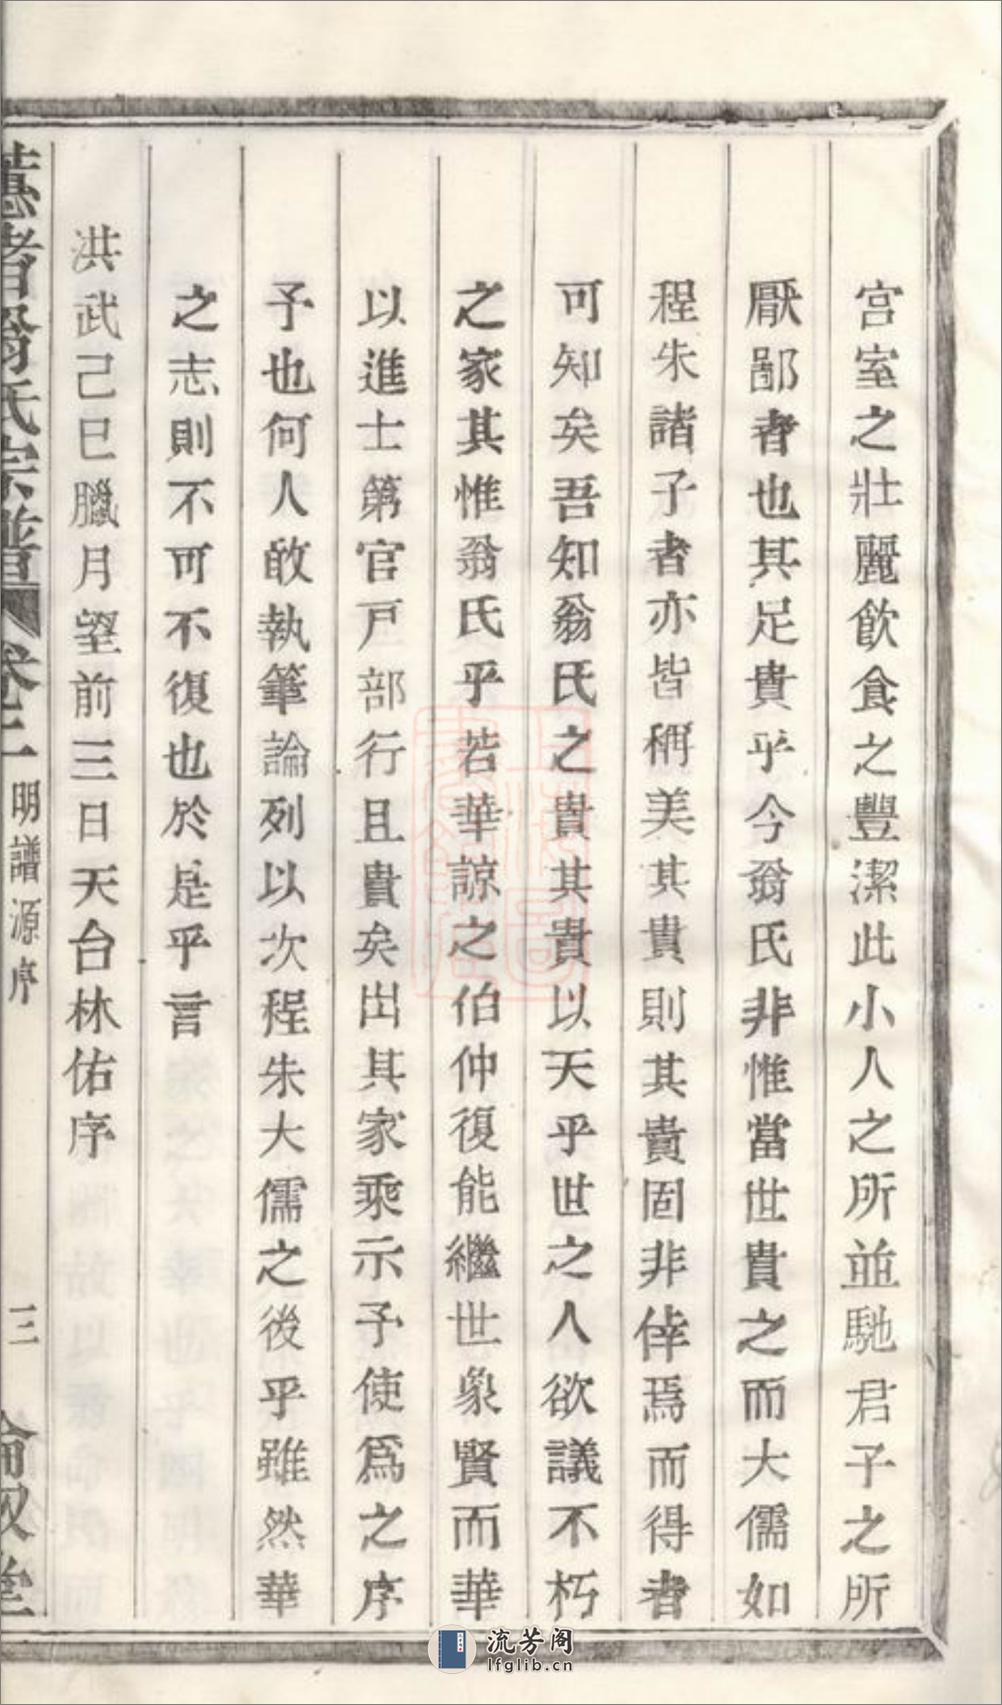 宫室之壯麗飲食之豐潔此小人之所並馳君子之所
厭鄙者也其足貴乎今翁氏非惟當世貴之而大儒如
程朱諸子者亦皆稱美其貴則其貴固非倖焉而得者
可知矣吾知翁氏之貴其貴以天乎世之人欲議不朽
之家其惟翁氏乎若華諒之伯仲復能繼世象賢而華
以進士第官戶部行且貴矣出其家乘示予使爲之序
予也何人敢執筆論列以次程朱大儒之後乎雖然華
之志則不可不復也於是乎言
洪武己巳臘月望前三日天台林佑序
翁氏宗譜 卷二 明譜源序 三 倫叙堂
流芳阁
lfglib.cn